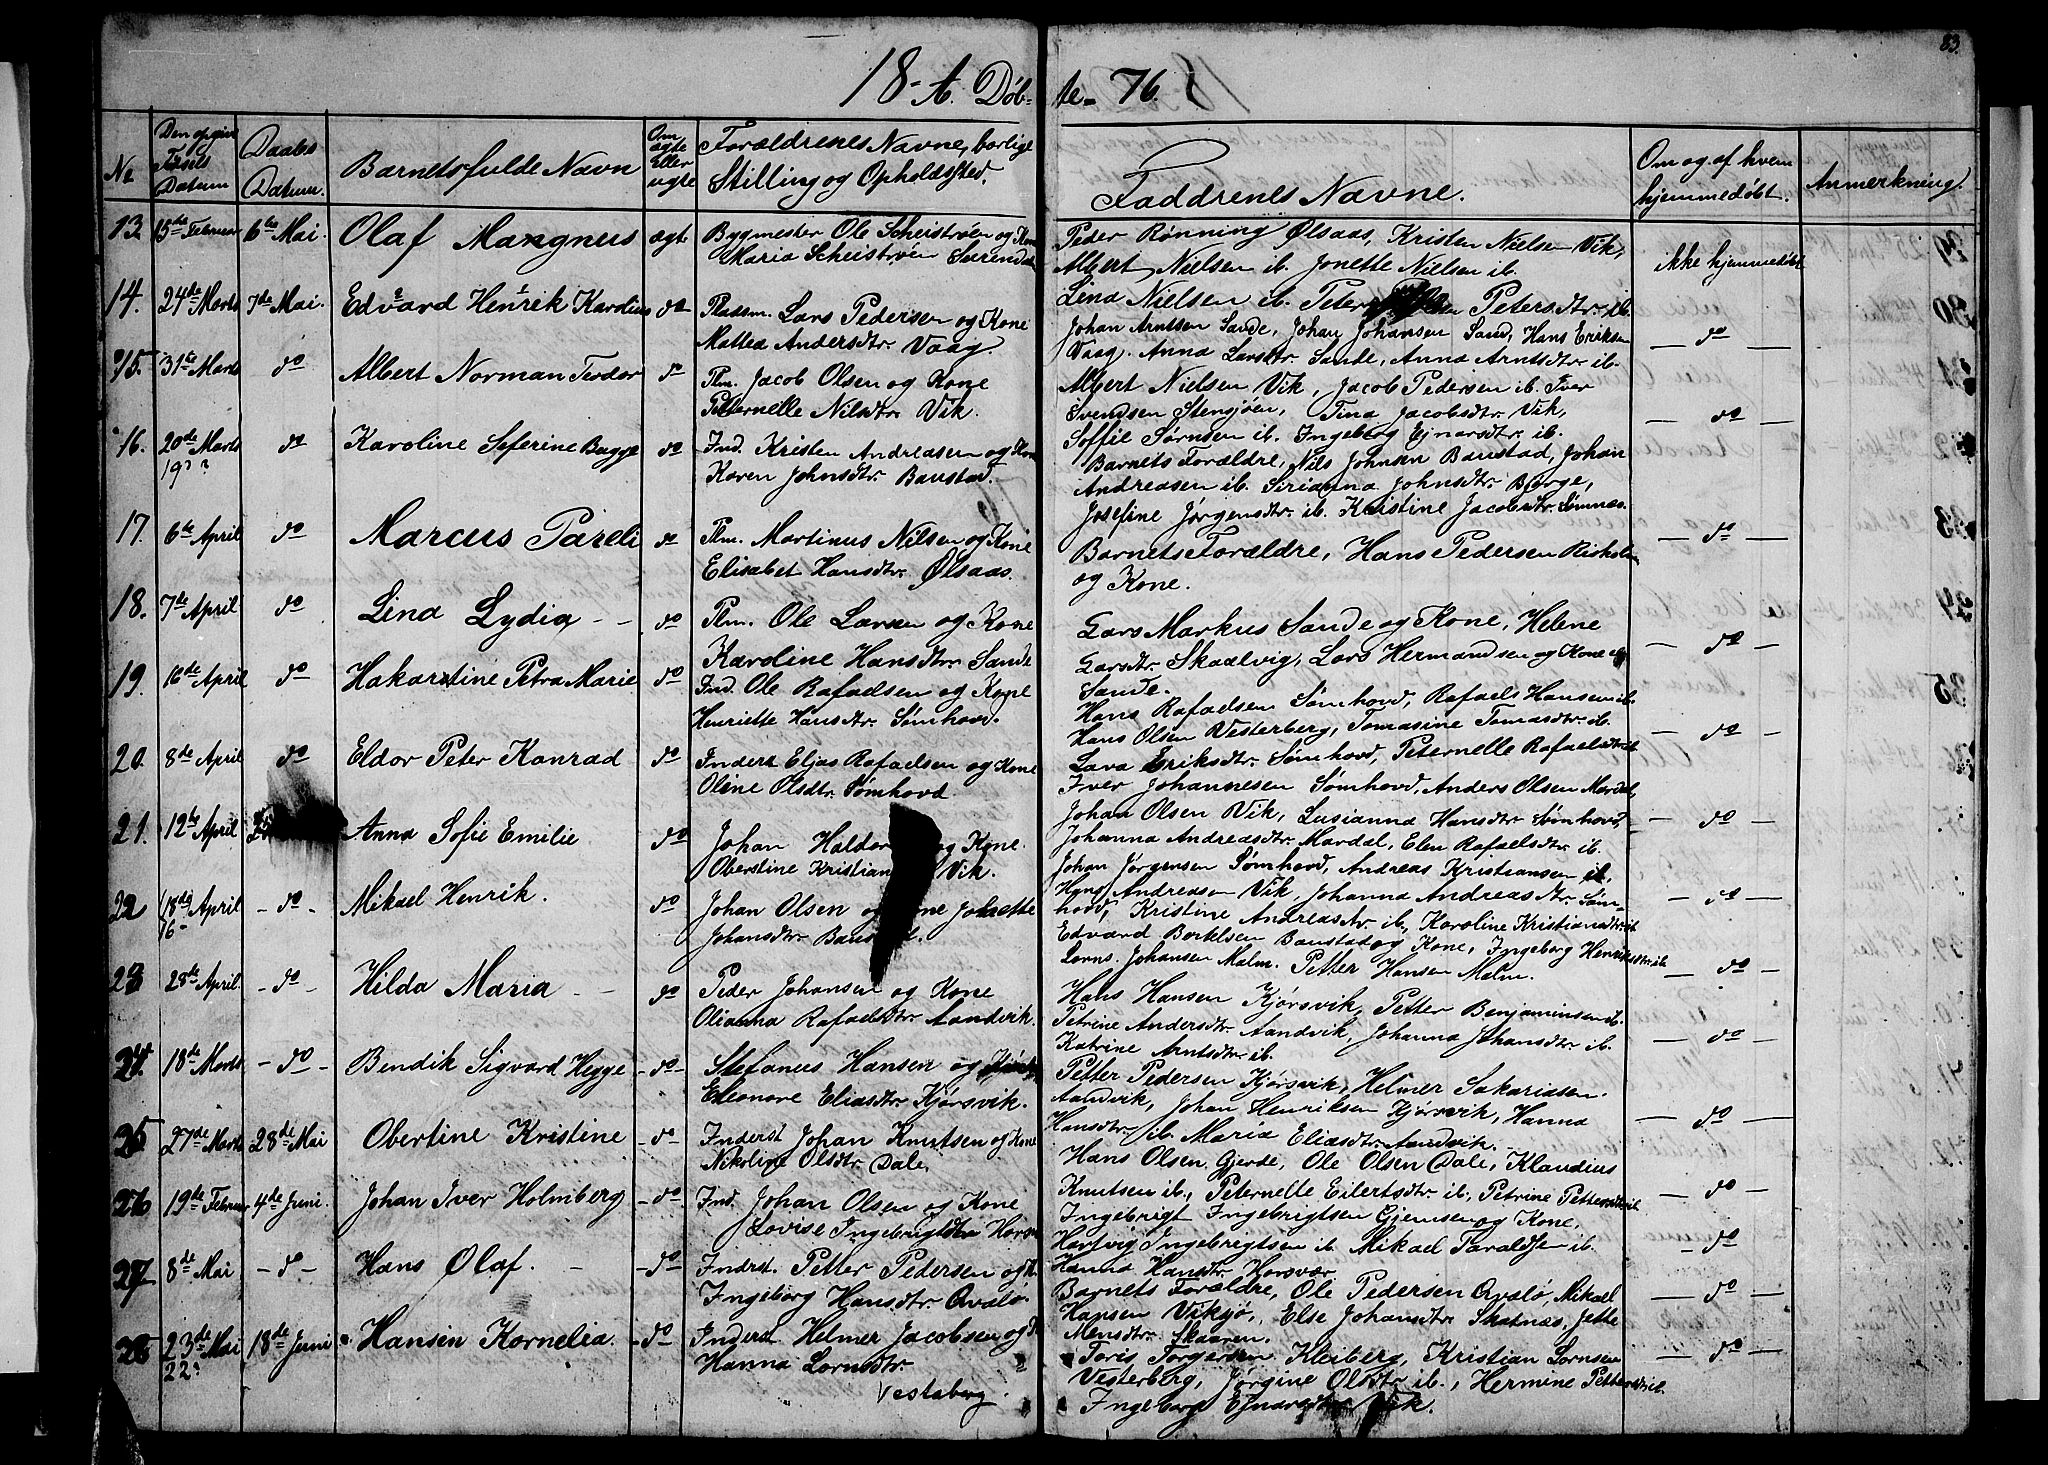 83.
18-A. Døb-
te- 76.
No
Den opgivne Fødsels Datum
Daabs Datum.
Barnets fulde Navn
Om ægte Eller uægte
Forældrenes Navne, borlige Stilling og Opholdssted.
Faddrenes Navne.
Om og af hvem hjemmedøbt.
Anmerkning.
13 15de Februar 6te Mai. Olaf Mangnus ægt. Bygmester Ole Scheistrøen og Kone
Maria Scheistrøen Surendal
Peder Rønning Ølsaas, Kristen Nielsen Vik,
Albert Nielsen ib. Jonette Nielsen ib.
Lina Nielsen ib. Peter Petersdtr. ib.
ikke hjemmedøbt
14. 24de Marts 7de Mai. Edvard Henrik Karolius do Pladsm. Lars Pedersen og Kone
Mattea Andersdtr. Vaag.
Johan Arntsen Sande, Johan Johansen Sand, Hans Eriksen
Vaag. Anna Larsdtr. Sande, Anna Arntsdtr. ib.
— do —
15. 31te Marts do Albert Norman Teodor do Plm. Jacob Olsen og Kone
Petternelle Nilsdtr. Vik.
Albert Nielsen Vik, Jacob Pedersen ib. Iver
Svendsen Stensjøen, Tina Jacobsdtr. Vik,
Soffie Sørnsen ib. Ingeberg Ejnarsdtr. ib.
— do —
16. 20de Marts do Karoline Seferine Bugge do Ind. Kristen Andreasen og Kone
19??
Karen Johnsdtr. Baustad.
Barnets Forældre, Nils Johnsen Baustad, Johan
Andreasen ib. Sirianna Johnsdtr. Børge,
Josefine Jørgensdtr. ib. Kristine Jacobsdtr. Sømnæs.
— do —
17. 6te April do Marcus Pareli do Plm. Martinus Nilsen og Kone
Elisabet Hansdtr. Ølsaas.
Barnets Forældre, Hans Pedersen
og Kone.
18. 7de April do Lina Lydia - - do Plm. Ole Larsen og Kone
Karoline Hansdtr. Sande
Lars Markus Sande og Kone, Helene
Larsdtr. Skaalvig, Lars Hermandsen og Kone
Sande.
— do —
19. 16de April do Hakarstine Petra Marie do Ind. Ole Rafaelsen og Kone
Henriette Hansdtr. Sømhovd.
Hans Rafaelsen Sømhovd, Rafaels Hansen ib.
Hans Olsen Vesterberg, Tomasine Tomasdtr. ib.
Lava Eriksdtr. Sømhovd, Peternelle Rafaelsdtr. ib
— do —
20. 8de April do Eldor Peter Konrad do Inderst Elias Rafaelsen og Kone
Oline Olsdtr. Sømhovd
Iver Johannesen Sømhovd, Anders Olsen Mardal,
Johan Olsen Vik, Lusianna Hansdtr. Sømhovd,
Johanna Andreasdtr. Mardal, Elen Rafaelsdtr. ib.
— do —
21. 12te April Anna Sofie Emilie do Johan Haldor og Kone.
Oberstine Kristian Vik.
Johan Jørgensen Sømhovd, Andreas Kristiansen ib.
Hans Andreasen Vik, Johanna Andreasdtr. Søm-
hovd, Kristine Andreasdtr. ib., Karoline Kristiansdtr. ib
— do —
22 18de April - do - Mikael Henrik. do Johan Olsen og Kone Johnette
16
Johansdtr. Baustad.
Edvard Bortelsen Baustad og Kone, Ingeborg Henriksdtr. ib
Lorns. Johansen Malm. Petter Hansen Malm.
— do —
23 28de April. - do - Hilda Maria - - do Peder Johansen og Kone
Olianna Rafaelsdtr. Aandvik.
Hans Hansen Kjørsvik, Petter Benjaminsen ib.
Petrine Andersdtr. Aandvik, Johanna Johansdtr. ib.
Katrine Arntsdtr. ib.
— do —
24. 18de Marts - do - Bendik Sigvard Hegge - do - Stefanus Hansen og
Eleonore Eliasdtr. Kjørsvik.
Petter Pedersen Kjørsvik, Helmer Sakariasen
Aandvik, Johan Henriksen Kjørsvik, Hanna
Hansdtr. ib. Maria Eliasdtr. Aandvik.
— do —
25 27de Marts 28de Mai Obertine Kristine - do - Inderst Johan Knutsen og Kone
Nikoline Olsdtr. Dale.
Hans Olsen Gjerde, Ole Olsen Dale, Klaudius
Knutsen ib., Peternelle Eilertsdtr. ib., Petrine Pettersdtr. ib
— do —
26 19de Februar 4de Juni. Johan Iver Holmberg - do - Ind. Johan Olsen og Kone
Lovise Ingebrigtsdtr
Ingebrigt Ingebrigtsen Gjemsen og Kone,
Hartvig Ingebrigtsen ib. Mikael Taraldsen ib.
Hanna Hansdtr. Horsvær
— do —
27 8de Mai - do - Hans Olaf. - - do - Inderst. Petter Pedersen og K.
Ingeborg Hansdtr. Qvalø.
Barnets Forældre, Ole Pedersen Qvalø, Mikael
Hansen Viksjø, Else Johansdtr. Skatnæs, Jette
Mensdtr. Skaaren.
— do —
28 23de Mai 18de Juni Hansin Kornelia. - do - Inderst Helmer Jacobsen og K
22?
Hanna Lornsdtr
Vestaberg.
Toris Torgersen Kleiberg, Kristian Lornsen
Vesterberg, Jørgine Olsdtr. ib., Hermine Pettersdtr. ib.
Ingeborg Ejnarsdtr. Vik.
— do —